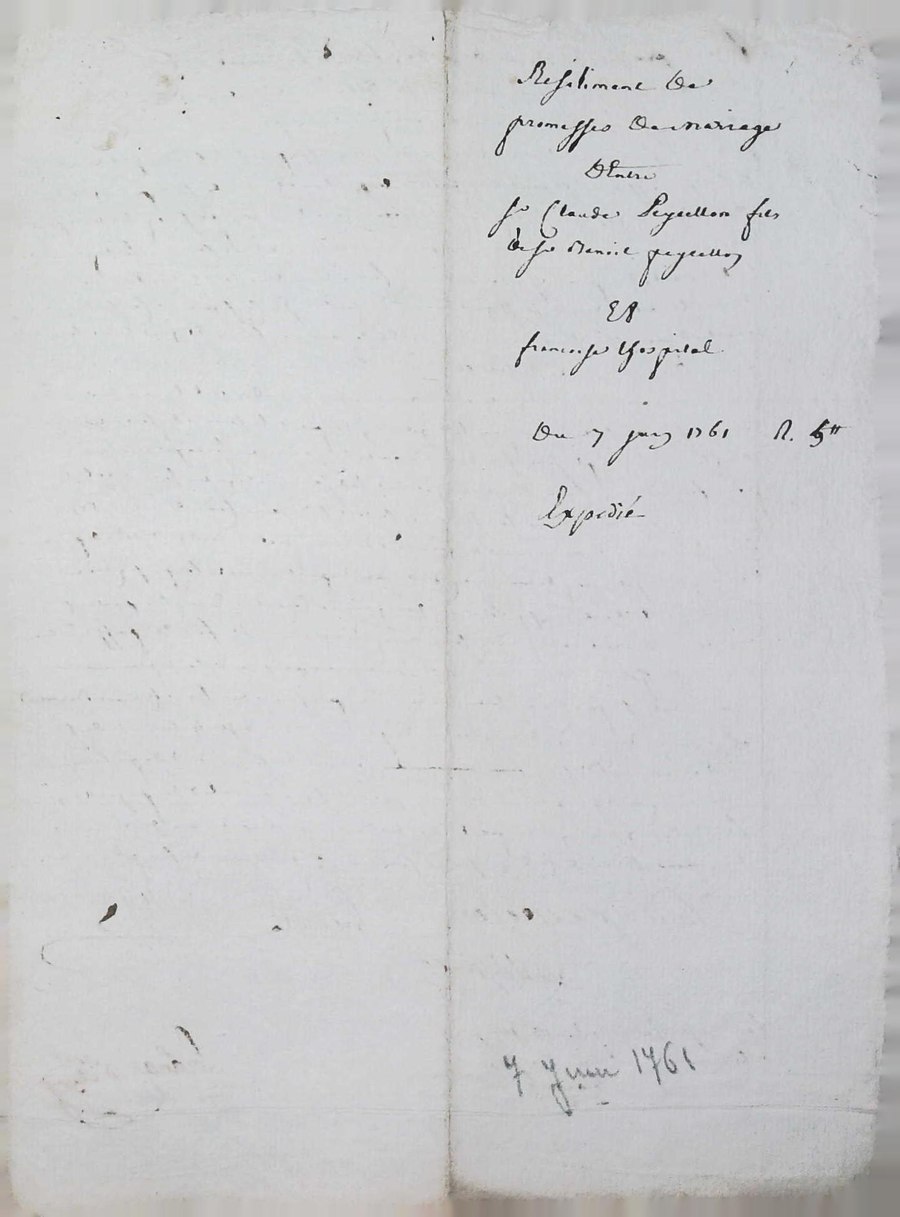 Resiliment De
promesses De mariage
D'Entre
Sr Claude Peyrellon fils
de Sr Benoit peyrellon
Et
françoise Chospital
Du 7 juin 1761 R. 9tt
Expedié
7 Juin 1761